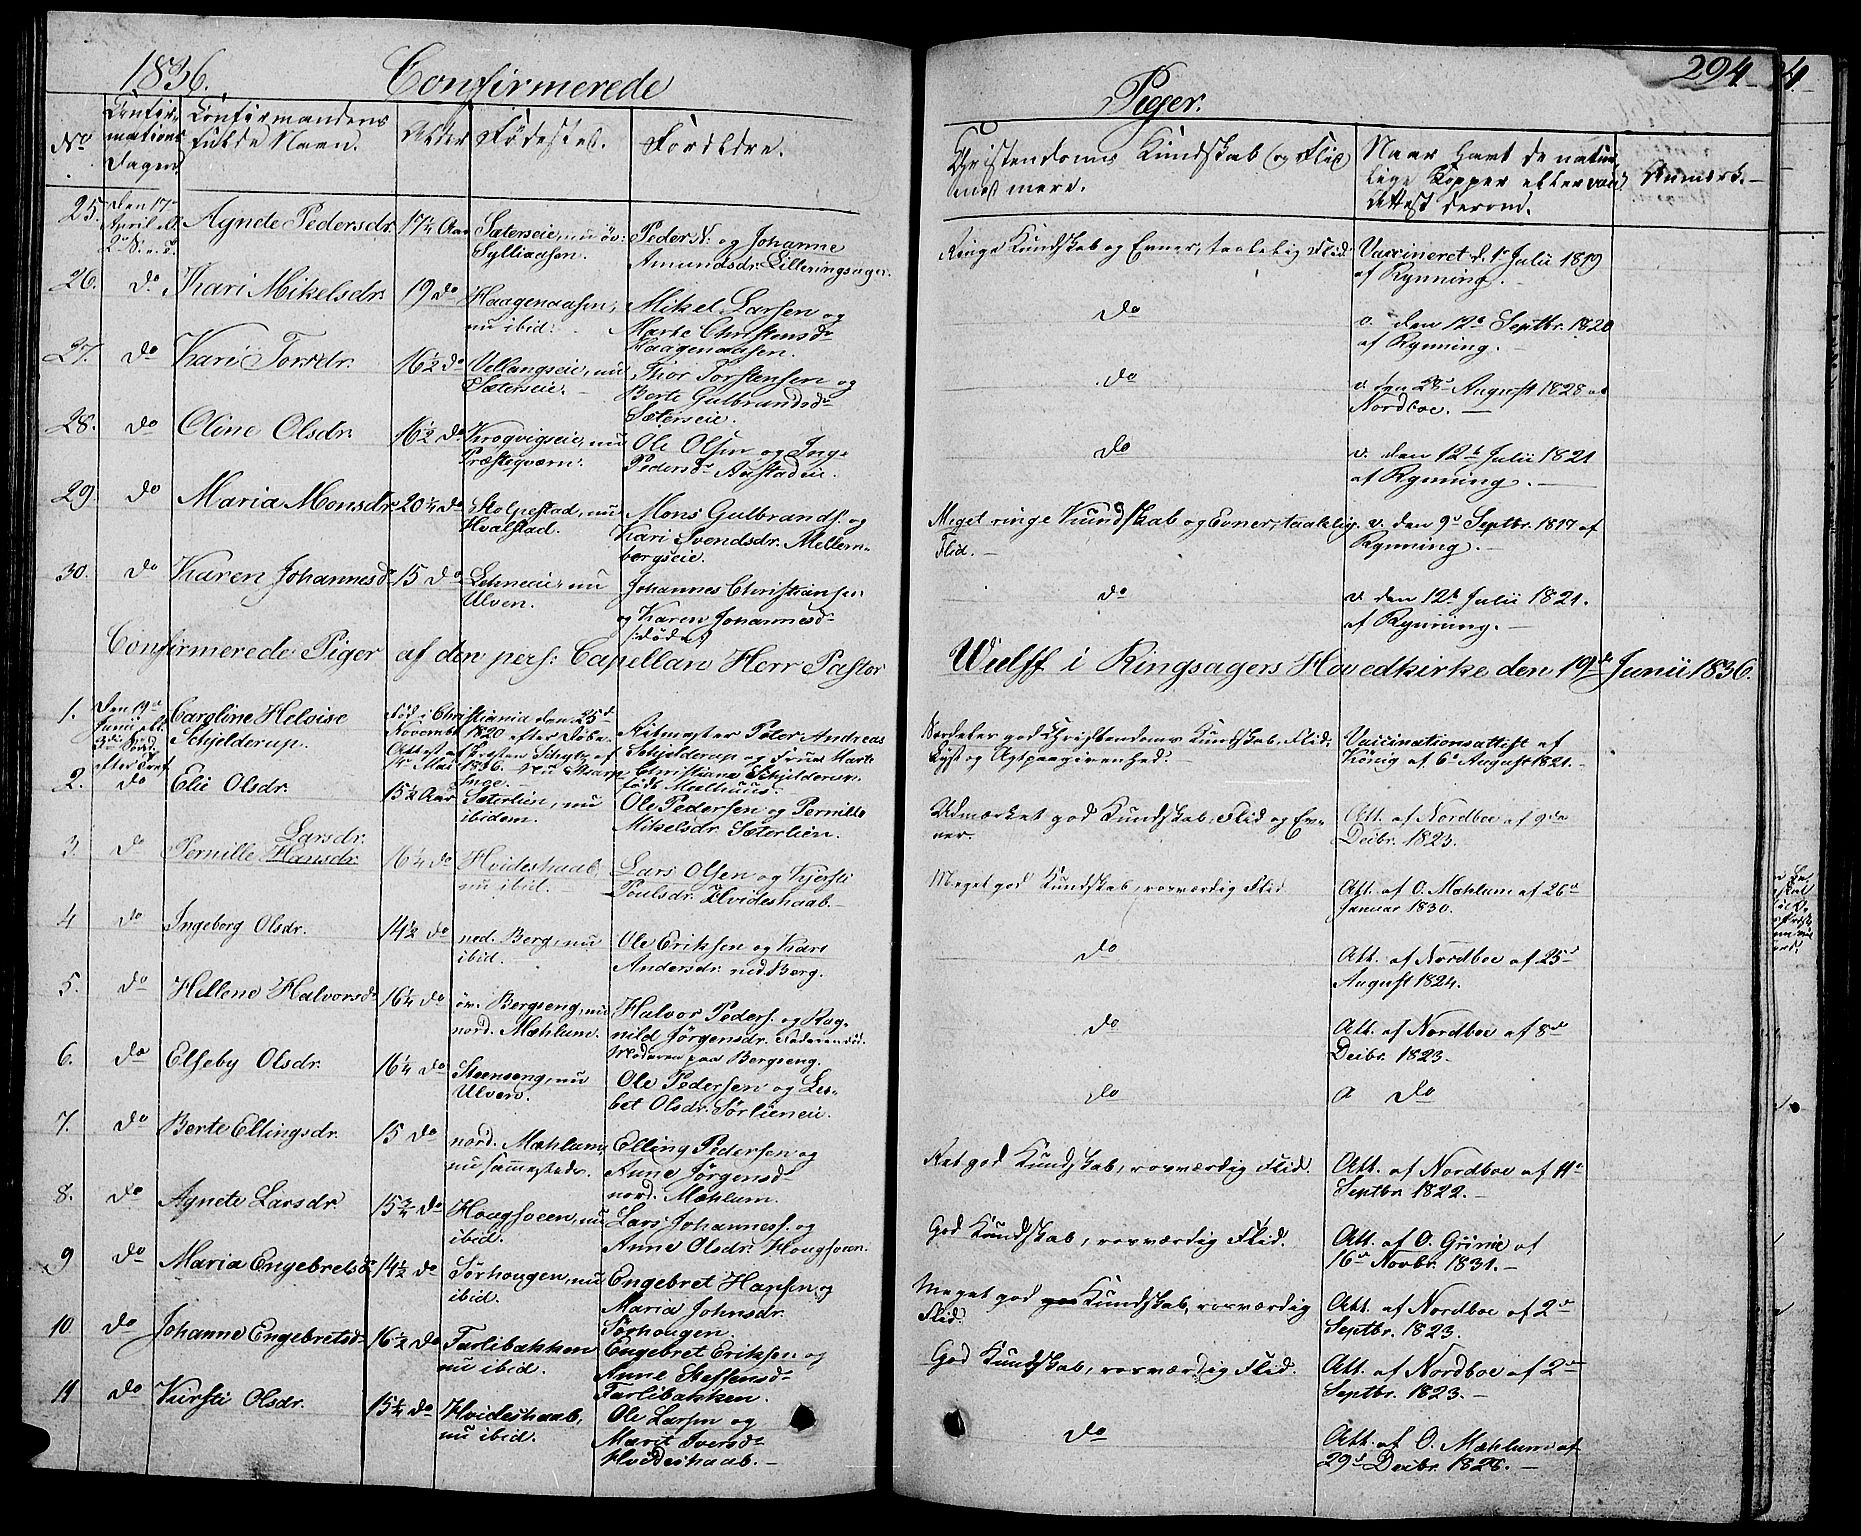 1836. Confirmerede Piger. 294.
No. Confirmations Dagen. Confirmandens fulde Navn. Alder Födested. Forældre. Christendoms Kundskab og Flid med mere. Naar havt de naturlige Kopper eller vacc: Attest derom. Anmærk.
25. Den 17de April Agnete Pedersdr. 17¼ Aar Sæterseie, nu öv: Sylliaasen. Peder N: og Johanne Amundsdr. Lilleringsager. Ringe Kundskab og Evner, taalelig Flid. Vaccineret d. 1e Julii 1819 af Rynning.
26. do Kari Mikelsdr. 19 do Haagenaasen, nu ibid. Mikel Larsen og Marte Christensdr Haagenaasen. do v. den 12e Septbr. 1820 af Rynning.
27. do Kari Torsdr. 16½ do Vellangseie, nu Sæterseie. Thor Torstensen og Berte Gulbrandsdr Sæterseie. do v. den 28de August 1828 af Nordboe.
28. do Oline Olsdr. 16½ do Krogvigseie, nu Præsteqværn. Ole Olsen og Inge Pedersdr Aastadeie. do v. den 12te Julii 1821 af Rynning.
29. do Maria Monsdr. 20¼ do Stolpestad, nu Hvalstad. Mons Gulbrands. og Kari Svendsdr. Mellembergseie. Meget ringe Kundskab og Evner, taalelig Flid. v. den 9de Septbr. 1817 af Rynning.
30. do Karen Johannesd 15 do Lehneeie, nu Ulven. Johannes Christiansen og Karen Johannesdr /:döde/ do v. den 12te Julii 1821. af Rynning.
Confirmerede Piger af den pers: Capellan Herr Pastor Wulff i Ringsagers Hovedkirke den 19de Junii 1836.
1. Den 19de Junii Caroline Heloise Schjelderup. Föd i Christiania den 25de Novembr 1820 efter Döbe Attest af 1836. Ritmester Peter Andreas Schjelderup og Frue Marte Christiane Schjelderup föde Malthuus. Særdeles god Christendoms Kundskab, Flid, Lyst og Agtpaagivenhed. Vaccinationsattest af König af 6e August 1821.
2. do Elie Olsdr. 15½ Aar Sæterlien, nu ibidem. Ole Pedersen og Pernille Mikelsdr. Sæterlien. Udmærket god Kundskab, Flid og Evner. Att. af Nordboe af 9de Decbr. 1823.
3. do Pernille Larsdr. Hansdr. 16¼ do Hvideshaab, nu ibid. Lars Olsen og Kjersti Poulsdr. Hvideshaab. Meget god Kundskab, rosværdig Flid Att. af O. Mæhlum af 26de Januar 1830.
4 do Ingeborg Olsdr. 14½ do ned. Berg, nu ibid. Ole Eriksen og Kari Andersdr. ned Berg. do Att. af Nordboe af 25de August 1824.
5. do Hellene Halvorsd 16¼ do öv. Bergseng, nu nord. Mæhlum. Halvor Peders. og Ragnild Jörgensdr. Faderen död. Moderen paa Bergseng. do Att. af Nordboe af 8de Decbr. 1823.
6. do Elseby Olsdr. 16¼ do Steenseng, nu Ulven. Ole Pedersen og Lisbet Olsdr. Sörlieneie. do a do
7. do Berte Ellingsdr. 15 do nord. Mæhlum, nu sammesteds. Elling Pedersen og Anne Jörgensdr nord. Mæhlum. Ret god Kundskab, rosværdig Flid. Att. af Nordboe af 11e Septbr 1822.
8. do Agnete Larsdr. 15¾ do Hougsveen, nu ibid. Lars Johanness. og Anne Olsdr. Hougsveen. God Kundskab, rosværdig Flid. Att. af O. Grine af 16de Novbr. 1831.
9 do Maria Engebretsd 14½ do Sörhougen, nu ibid. Engebret Hansen og Maria Johnsdr. Sörhougen. Meget god Kundskab, rosværdig Flid. Att. af Nordboe af 2de Septbr. 1823.
10. do Johanne Engebretsd 16½ do Farlibakken nu ibid. Engebret Eriksen og Anne Steffensdr Farlibakken. God Kundskab, rosværdig Flid. Att. af Nordboe af 2de Septbr. 1823.
11 do Kirsti Olsdr. 15¼ do Hvideshaab, nu ibid. Ole Larsen og Marit Iversdr Hvideshaab. do Att. af O. Mæhlum af 29de Decbr. 1828.